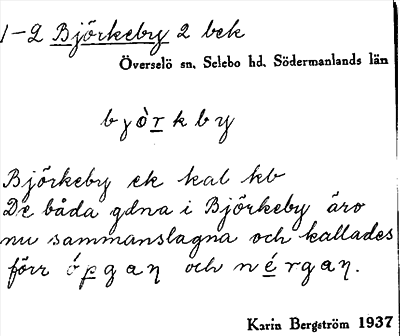 1-2 Björkeby 2 bek
Överselö sn. Selebo hd. Södermanlands län
byòrkby
Björkeby ek kal kb
De båda gdna i Björkeby äro
nu sammanslagna och kallades
förr ópgaŋ och nérgaŋ.
Karin Bergström 1937